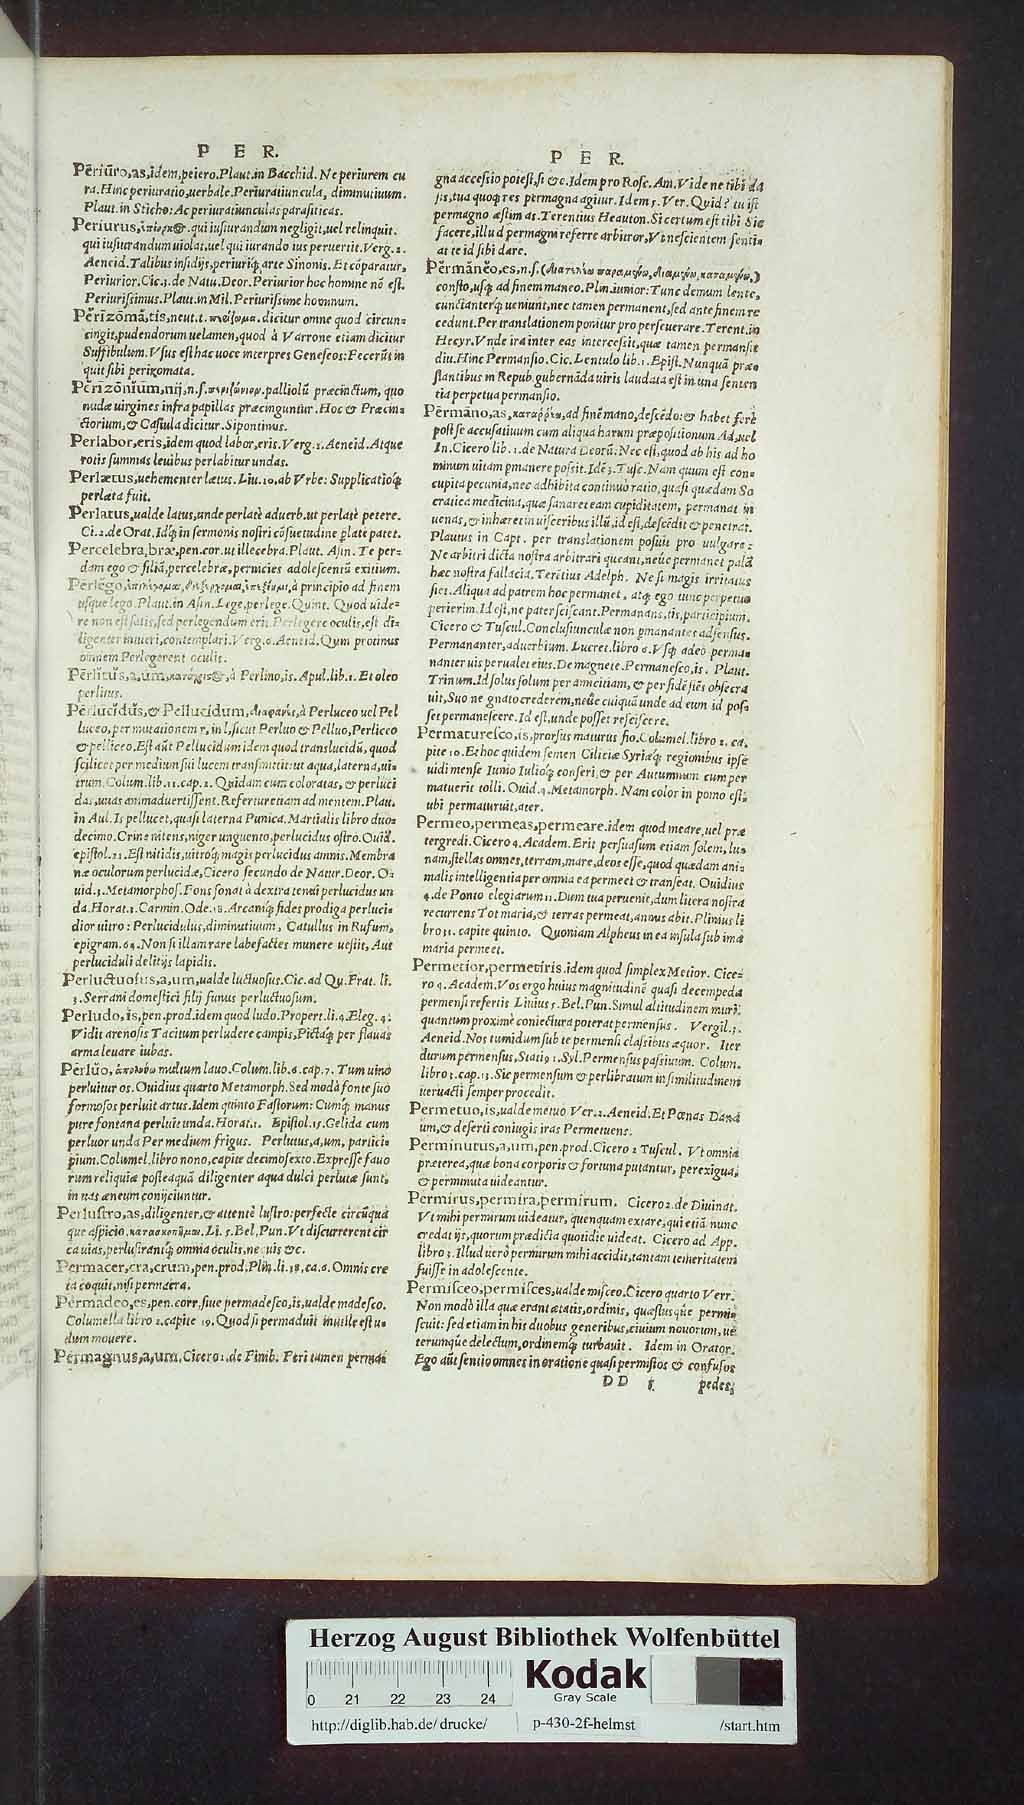 P E R.
Periūro,as,idem,peiero.Plaut.in Bacchid. Ne periurem cu
ra.Hinc periuratio,uerbale.Periuratiuncula, diminutiuum.
Plaut.in Sticho:Ac periuratiunculas parasiticas.
Periurus, qui iusiurandum negligit,uel relinquit.
qui iusiurandum uiolat,uel qui iurando ius peruertit.Verg.2.
Aeneid.Talibus insidijs,periuriq; arte Sinonis. Et cōparatur,
Periurior.Cic.3.de Natu.Deor.Periurior hoc homine nō est.
Periurissimus.Plaut.in Mil.Periurissime hominum.
Perizōmā,tis,neut.t.περίζωμα.dicitur omne quod circun-
cingit,pudendorum uelamen,quod à Varrone etiam dicitur
Suffibulum.Vsus est hac uoce interpres Geneseos:Fecerūt in
quit sibi perizomata.
Perizōnium,nij,n.s.περιζώνιον.palliolū præcinctum, quo
nudæ uirgines infra papillas præcinguntur. Hoc & Præcin-
ctorium,& Casiula dicitur.Sipontinus.
Perlabor,eris,idem quod labor,eris.Verg.1.Aeneid.Atque
rotis summas leuibus perlabitur undas.
Perlætus,uehementer lætus.Liu.10.ab Vrbe: Supplicatioq;
perlæta fuit.
Perlatus,ualde latus,unde perlatè aduerb.ut perlatè petere.
Ci.2.de Orat.Idq; in sermonis nostri cōsuetudine ꝑlatè patet.
Percelebra,bræ,pen.cor.ut illecebra.Plaut. Asin. Te per-
dam ego & filiā,percelebræ,pernicies adolescentū exitium.
Perlĕgo, à principio ad finem
usque lego.Plaut.in Asin.Lege,perlege.Quint. Quod uide-
re non est satis,sed perlegendum erit.Perlegere oculis,est di-
ligenter intueri,contemplari.Verg.6.Aeneid.Quin protinus
omnem Perlegerent oculis.
Perlĭtus,a,um, à Perlino,is.Apul.lib.1.Et oleo
perlitus.
Perlucidus,& Pellucidum,διαφανὴς,à Perluceo uel Pel
luceo,per mutationem r, in l,sicut Perluo & Pelluo,Perliceo
& pelliceo.Est aūt Pellucidum idem quod translucidū, quod
scilicet per medium sui lucem transmittit:ut aqua,laterna,ui-
trum.Colum.lib.11.cap.2.Quidam cum coloratas, & perluci
das,uuas animaduertissent.Refertur etiam ad mentem.Plau.
in Aul.Is pellucet,quasi laterna Punica.Martialis libro duo-
decimo.Crine nitens,niger unguento,perlucidus ostro.Ouid.
epistol.21.Est nitidis,uitroq; magis perlucidus amnis.Membra
næ oculorum perlucidæ,Cicero secundo de Natur.Deor.O-
uid.3.Metamorphos.Fons sonat à dextra tenui perlucidus un
da.Horat.1.Carmin.Ode.18.Arcaniq; fides prodiga perluci-
dior uitro: Perlucidulus,diminutiuum, Catullus in Rufum,
epigram.64.Non si illam rare labefactes munere uestit, Aut
perluciduli delitijs lapidis.
Perluctuosus,a,um,ualde luctuosus.Cic.ad Qu.Frat.li.
3.Serrani domestici filij funus perluctuosum.
Perludo,is,pen.prod.idem quod ludo.Propert.li.4.Eleg.4:
Vidit arenosis Tacitum perludere campis,Pictaq; per flauas
arma leuare iubas.
Perlŭo, ἀπολούω multum lauo.Colum.lib.6.cap.7. Tum uino
perluitur os.Ouidius quarto Metamorph.Sed modò fonte suo
formosos perluit artus.Idem quinto Fastorum: Cumq; manus
pure fontana perluit unda.Horat.1. Epistol.15.Gelida cum
perluor unda Per medium frigus. Perlutus,a,um, partici-
pium.Columel.libro nono,capite decimosexto.Expresse fauo
rum reliquiæ posteaquā diligenter aqua dulci perlutæ sunt,
in uas æneum conijciuntur.
Perlustro,as,diligenter,& attentè lustro:perfecte circūqua
que aspicio. Li.5.Bel.Pun.Vt discurrerent cir
ca uias,perlustrarentq; omnia oculis,ne quis &c.
Permacer,cra,crum,pen.prod.Plin.li.18.ca.6.Omnis cre
ta coquit,nisi permacra.
Permădeo,es,pen.corr.siue permadesco,is,ualde madesco.
Columella libro 2.capite 19.Quod si permaduit inutile est u-
dum mouere.
Permagnus,a,um.Cicero 2.de Finib. Peri tamen permai
P E R.
gna accessio potest,si &c.Idem pro Rosc.Am.Vide ne tibi da
tis,tua quoq; res permagna agitur.Idem 5.Ver.Quid? tu ist
permagno æstimas.Terentius Heauton.Si certum est tibi Sic
facere,illud permagni referre arbitror,Vt nescientem senti-
at te id sibi dare.
Permănĕo,es,n.s.
consto,usq; ad finem maneo.Plin.iunior:Tunc demum lente,
cunctanterq; ueniunt,nec tamen permanent,sed ante finem re
cedunt.Per translationem ponitur pro perseuerare.Terent.in
Hecyr.Vnde ira inter eas intercessit,quæ tamen permansit
diu.Hinc Permansio.Cic.Lentulo lib.1.Epist.Nunquā præ-
stantibus in Repub.gubernāda uiris laudata est in una senten
tia perpetua permansio.
Permāno,as, ad finē mano,descēdo:& habet ferè
post se accusatiuum cum aliqua harum præpositionum Ad,uel
In.Cicero lib.1.de Natura Deorū:Nec est,quod ab his ad ho
minum uitam pmanere possit.Idē 3.Tusc.Nam quum est con-
cupita pecunia,nec adhibita continuò ratio,quasi quædam So
cratica medicina,quæ sanaret eam cupiditatem, permanat in
uenas,& inhæret in uisceribus illū,id est,descēdit & penetrat.
Plautus in Capt. per translationem posuit pro uulgare:
Ne arbitri dicta nostra arbitrari queant,neúe permanet palā
hæc nostra fallacia.Terētius Adelph. Ne si magis irritatus
siet.Aliqua ad patrem hoc permanet, atq; ego tunc perpetuo
perierim.Id est,ne pater resciscant.Permanans,tis,participium.
Cicero & Tuscul.Conclusiunculæ non pmanantes ad sensus.
Permananter,aduerbium. Lucret.libro 6.Vsq; adeò perma-
nanter uis perualet eius.De magnete.Permanesco,is. Plaut.
Trinum.Id solus solum per amicitiam, & per fidē flēs obsecra
uit,Suo ne gnato crederem,neúe cuiquā unde ad eum id pos-
set permanescere.Id est,unde posset resciscere.
Permaturesco,is,prorsus maturus fio.Columel.libro 2.ca.
pite 10.Et hoc quidem semen Ciliciæ Syriæq; regionibus ipse
uidi mense Iunio Iulioq; conseri,& per Autumnum cum per
maturuerit tolli.Ouid.4.Metamorph. Nam color in pomo est:
ubi permaturuit,ater.
Permeo,permeas,permeare.idem quod meare,uel præ
tergredi.Cicero 4.Academ. Erit persuasum etiam solem, lu-
nam,stellas omnes,terram,mare,deos esse,quod quædam ani-
malis intelligentia per omnia ea permeet & transeat. Ouidius
4.de Ponto elegiarum 11.Dum tua peruenit,dum litera nostra
recurrens Tot maria,& terras permeat,annus abit.Plinius li
bro 31.capite quinto. Quoniam Alpheus in ea insula sub imā
maria permeet.
Permetior,permetiris.idem quod simplex Metior. Cice-
ro 4.Academ.Vos ergo huius magnitudinē quasi decempeda
permensi refertis Liuius 5.Bel.Pun.Simul altitudinem muri,
quantum proximè coniectura poterat permensus. Vergil.3.
Aeneid.Nos tumidum sub te permensi classibus æquor. Iter
durum permensus,Statio 1.Syl.Permensus passiuum. Colum.
libro 3.cap.13.Sic permensum & perlibratum in similitudinem
ueruacti semper procedit.
Permetuo,is,ualde metuo Ver.2.Aeneid.Et Pœnas Dana
um,& deserti coniugis iras Permetuens.
Perminutus,a,um,pen.prod.Cicero 2 Tuscul. Vt omnia
præterea,quæ bona corporis & fortuna putantur, perexigua,
& perminuta uideantur.
Permirus,permira,permirum. Cicero 2.de Diuinat.
Vt mihi permirum uideatur, quenquam extare,qui etiā nunc
credat ijs,quorum prædicta quotidie uideat. Cicero ad App.
libro 3.Illud uerò permirum mihi accidit,tantam temeritatem
fuisse in adolescente.
Permisceo,permisces,ualde misceo.Cicero quarto Verr.
Non modò illa quæ erant ætatis,ordinis, quæstusque permi-
scuit: sed etiam in his duobus generibus,ciuium nouorum, ue
terumque delectum,ordinemq; turbauit. Idem in Orator.
Ego aūt sentio omnes in oratione quasi permistos & confusos
DD 5. pedes,
Herzog August Bibliothek Wolfenbüttel
Kodak
Gray Scale
0 21 22 23 24
http://diglib.hab.de/drucke/ p-430-2f-helmst /start.htm